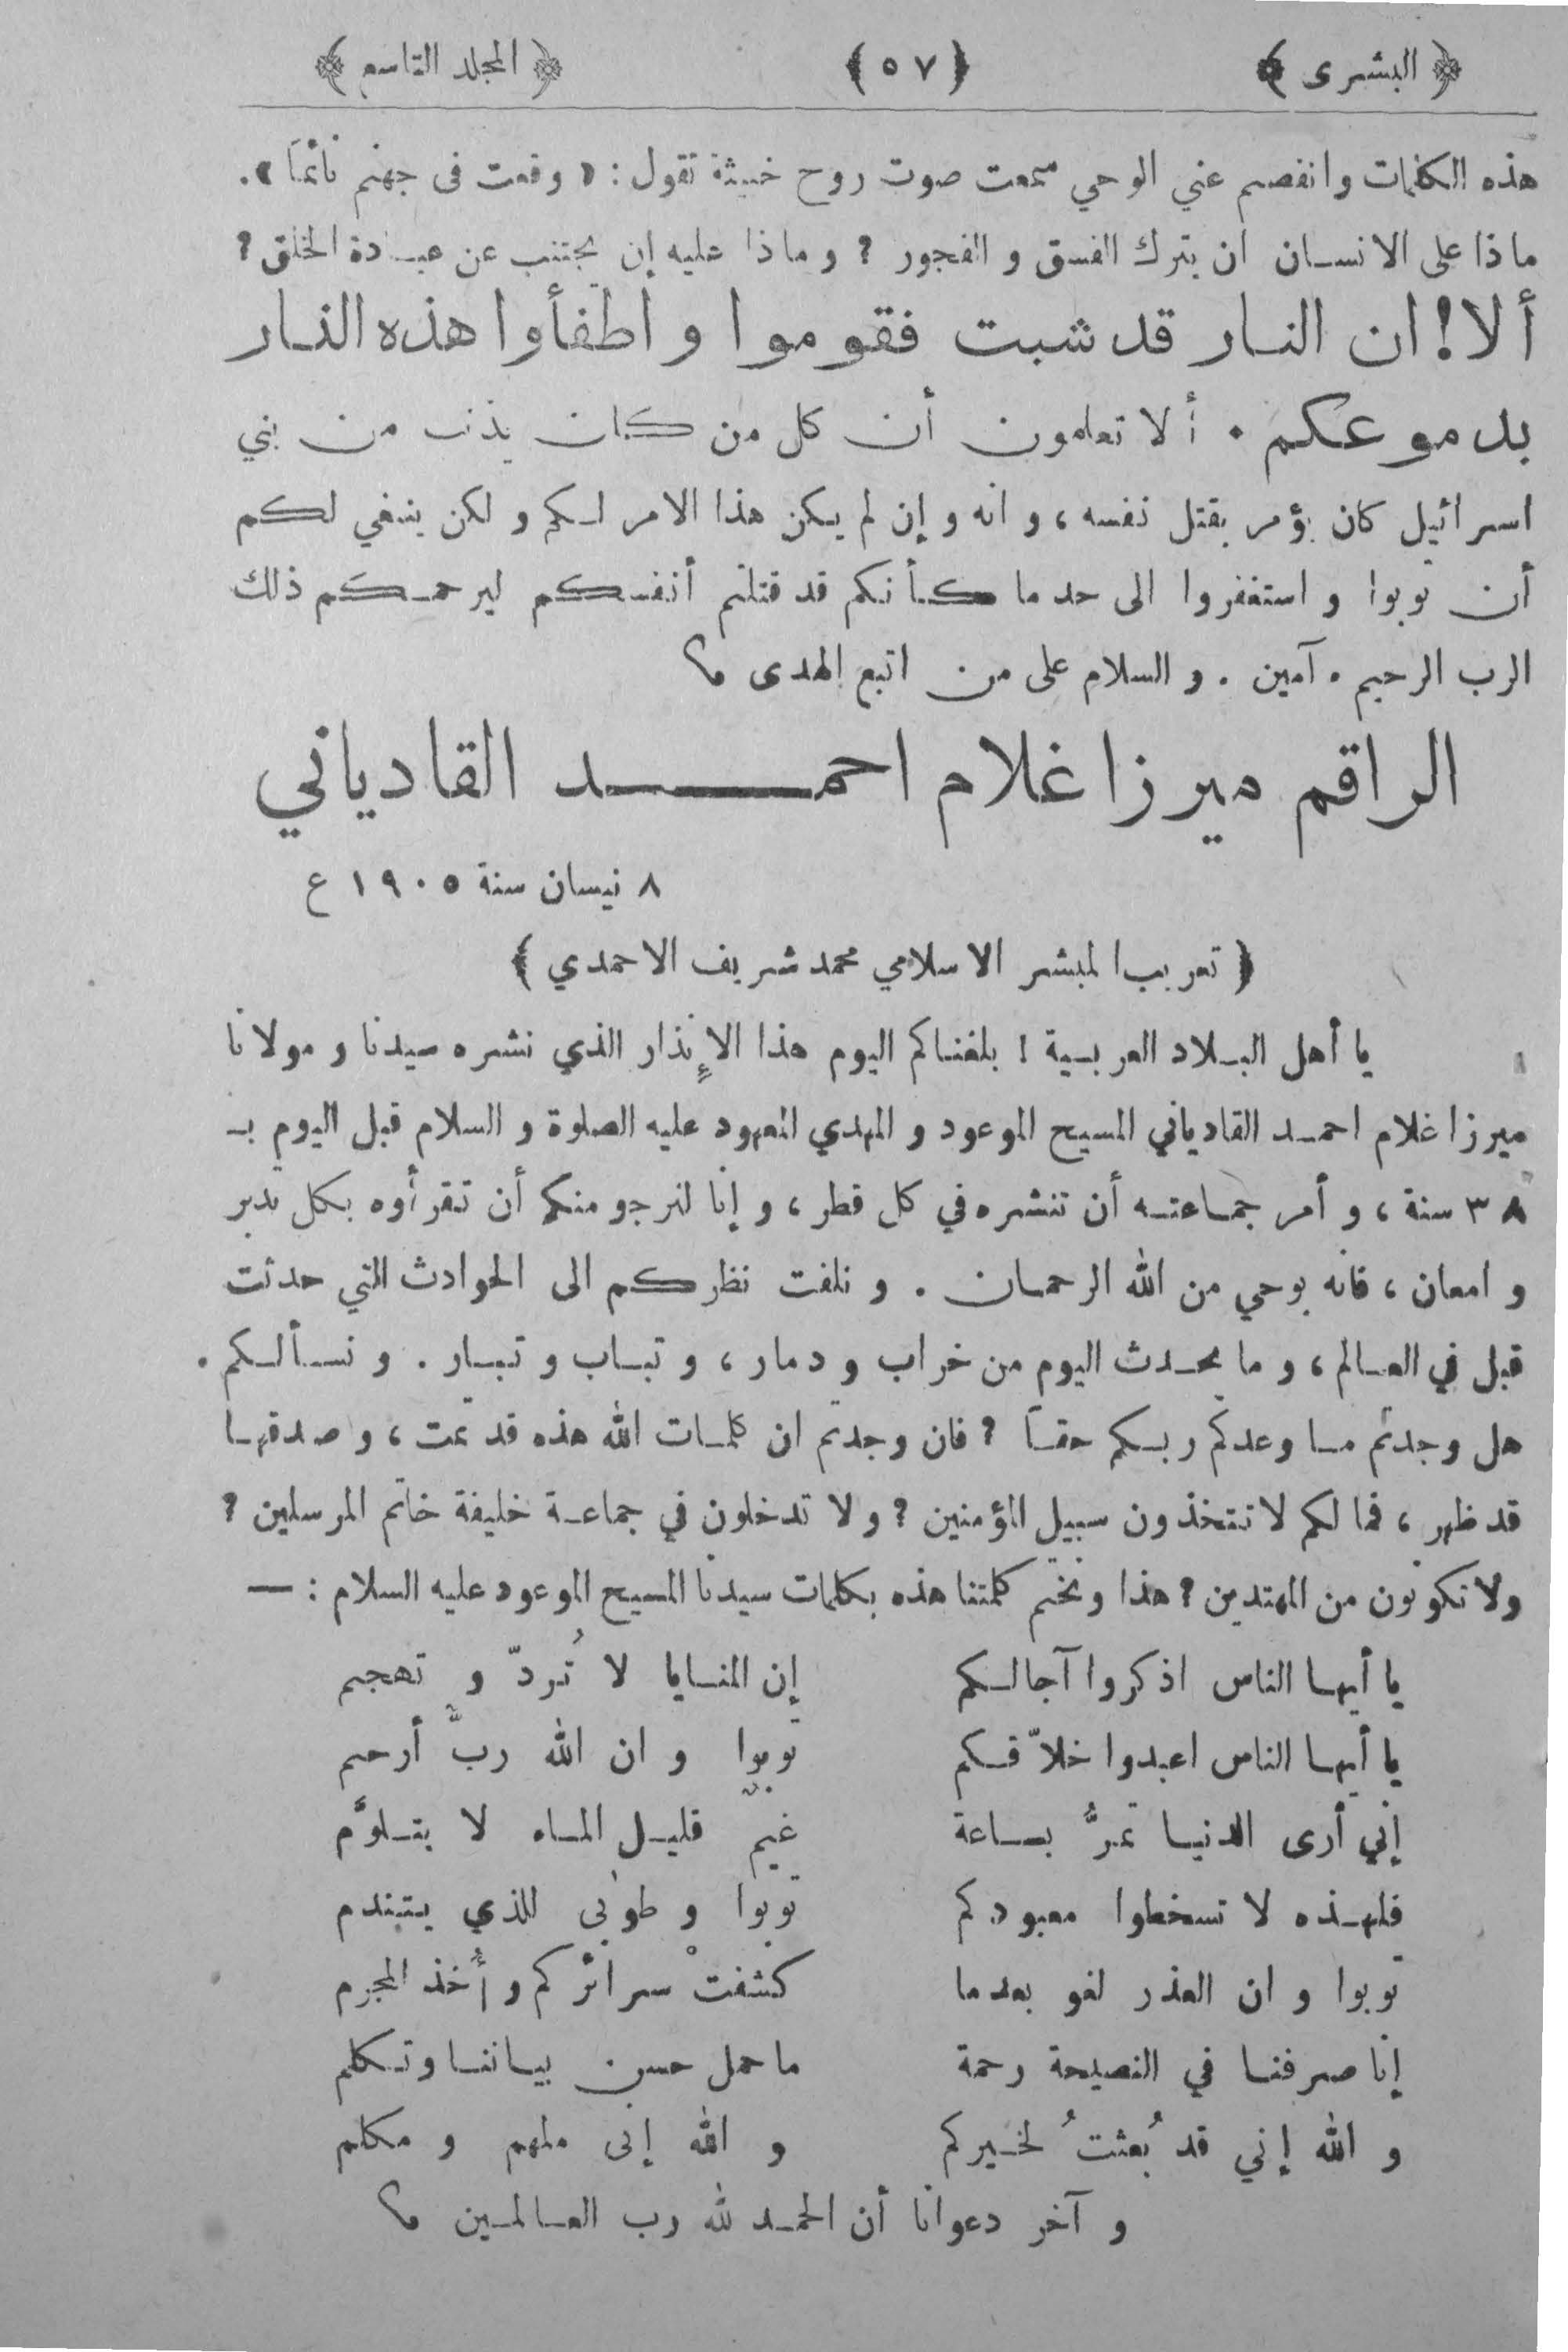 ﴿ البشرى ﴾ ﴿ ٥٧ ﴾ ﴿ المجلد التاسع ﴾
هذه الكلمات وانفصم عني الوحي سمعت صوت روح خبيثة تقول : « وقعت فى جهنم نائماً » .
ماذا على الانسان ان يترك الفسق و الفجور ؟ و ماذا عليه إن يجتنب عن عبادة الخلق ؟
ألا! ان النار قد شبت فقوموا و اطفأوا هذه النار
بدموعكم . ألا تعلمون أن كل من كان يذنب من بني
اسرائيل كان يؤمر بقتل نفسه ، و انه و إن لم يكن هذا الامر لكم و لكن ينبغي لكم
أن توبوا و استغفروا الى حد ما كأنكم قد قتلتم أنفسكم ليرحمكم ذلك
الرب الرحيم . آمين . و السلام على من اتبع الهدى م
الراقم ميرزا غلام احمد القادياني
٨ نيسان سنة ١٩٠٥ ع
﴿ تعريب المبشر الاسلامي محمد شريف الاحمدي ﴾
يا أهل البلاد العربية ! بلغناكم اليوم هذا الإنذار الذي نشره سيدنا و مولانا
ميرزا غلام احمد القادياني المسيح الموعود و المهدي المعهود عليه الصلوة و السلام قبل اليوم بـ
٣٨ سنة ، و أمر جماعته أن تنشره في كل قطر ، و إنا لنرجو منكم أن تقرأوه بكل تدبر
و امعان ، فانه بوحي من الله الرحمان . و نلفت نظركم الى الحوادث التي حدثت
قبل في العالم ، و ما يحدث اليوم من خراب و دمار ، و تباب و تبار . و نسألكم .
هل وجدتم ما وعدكم ربكم حقاً ؟ فان وجدتم ان كلمات الله هذه قد تمت ، و صدقها
قد ظهر ، فما لكم لا تتخذون سبيل المؤمنين ؟ و لا تدخلون في جماعة خليفة خاتم المرسلين ؟
ولا تكونون من المهتدين ؟ هذا ونختم كلمتنا هذه بكلمات سيدنا المسيح الموعود عليه السلام : —
يا أيها الناس اذكروا آجالكم إن المنايا لا تُردّ و تهجم
يا أيها الناس اعبدوا خلاّقكم توبوا و ان الله ربٌّ أرحم
إني أرى الدنيا تمرُّ بساعة غيمٌ قليل الماء لا يتلوَّم
فلهذه لا تسخطوا معبودكم توبوا و طوبى للذي يتندم
توبوا و ان العذر لغو بعدما كشفتْ سرائركم و أُخذ المجرم
إنا صرفنا في النصيحة رحمة ما حمل حسن بياننا وتكلم
و الله إني قد بُعثتُ لخيركم و الله إنى ملهم و مكلم
و آخر دعوانا أن الحمد لله رب العالمين م